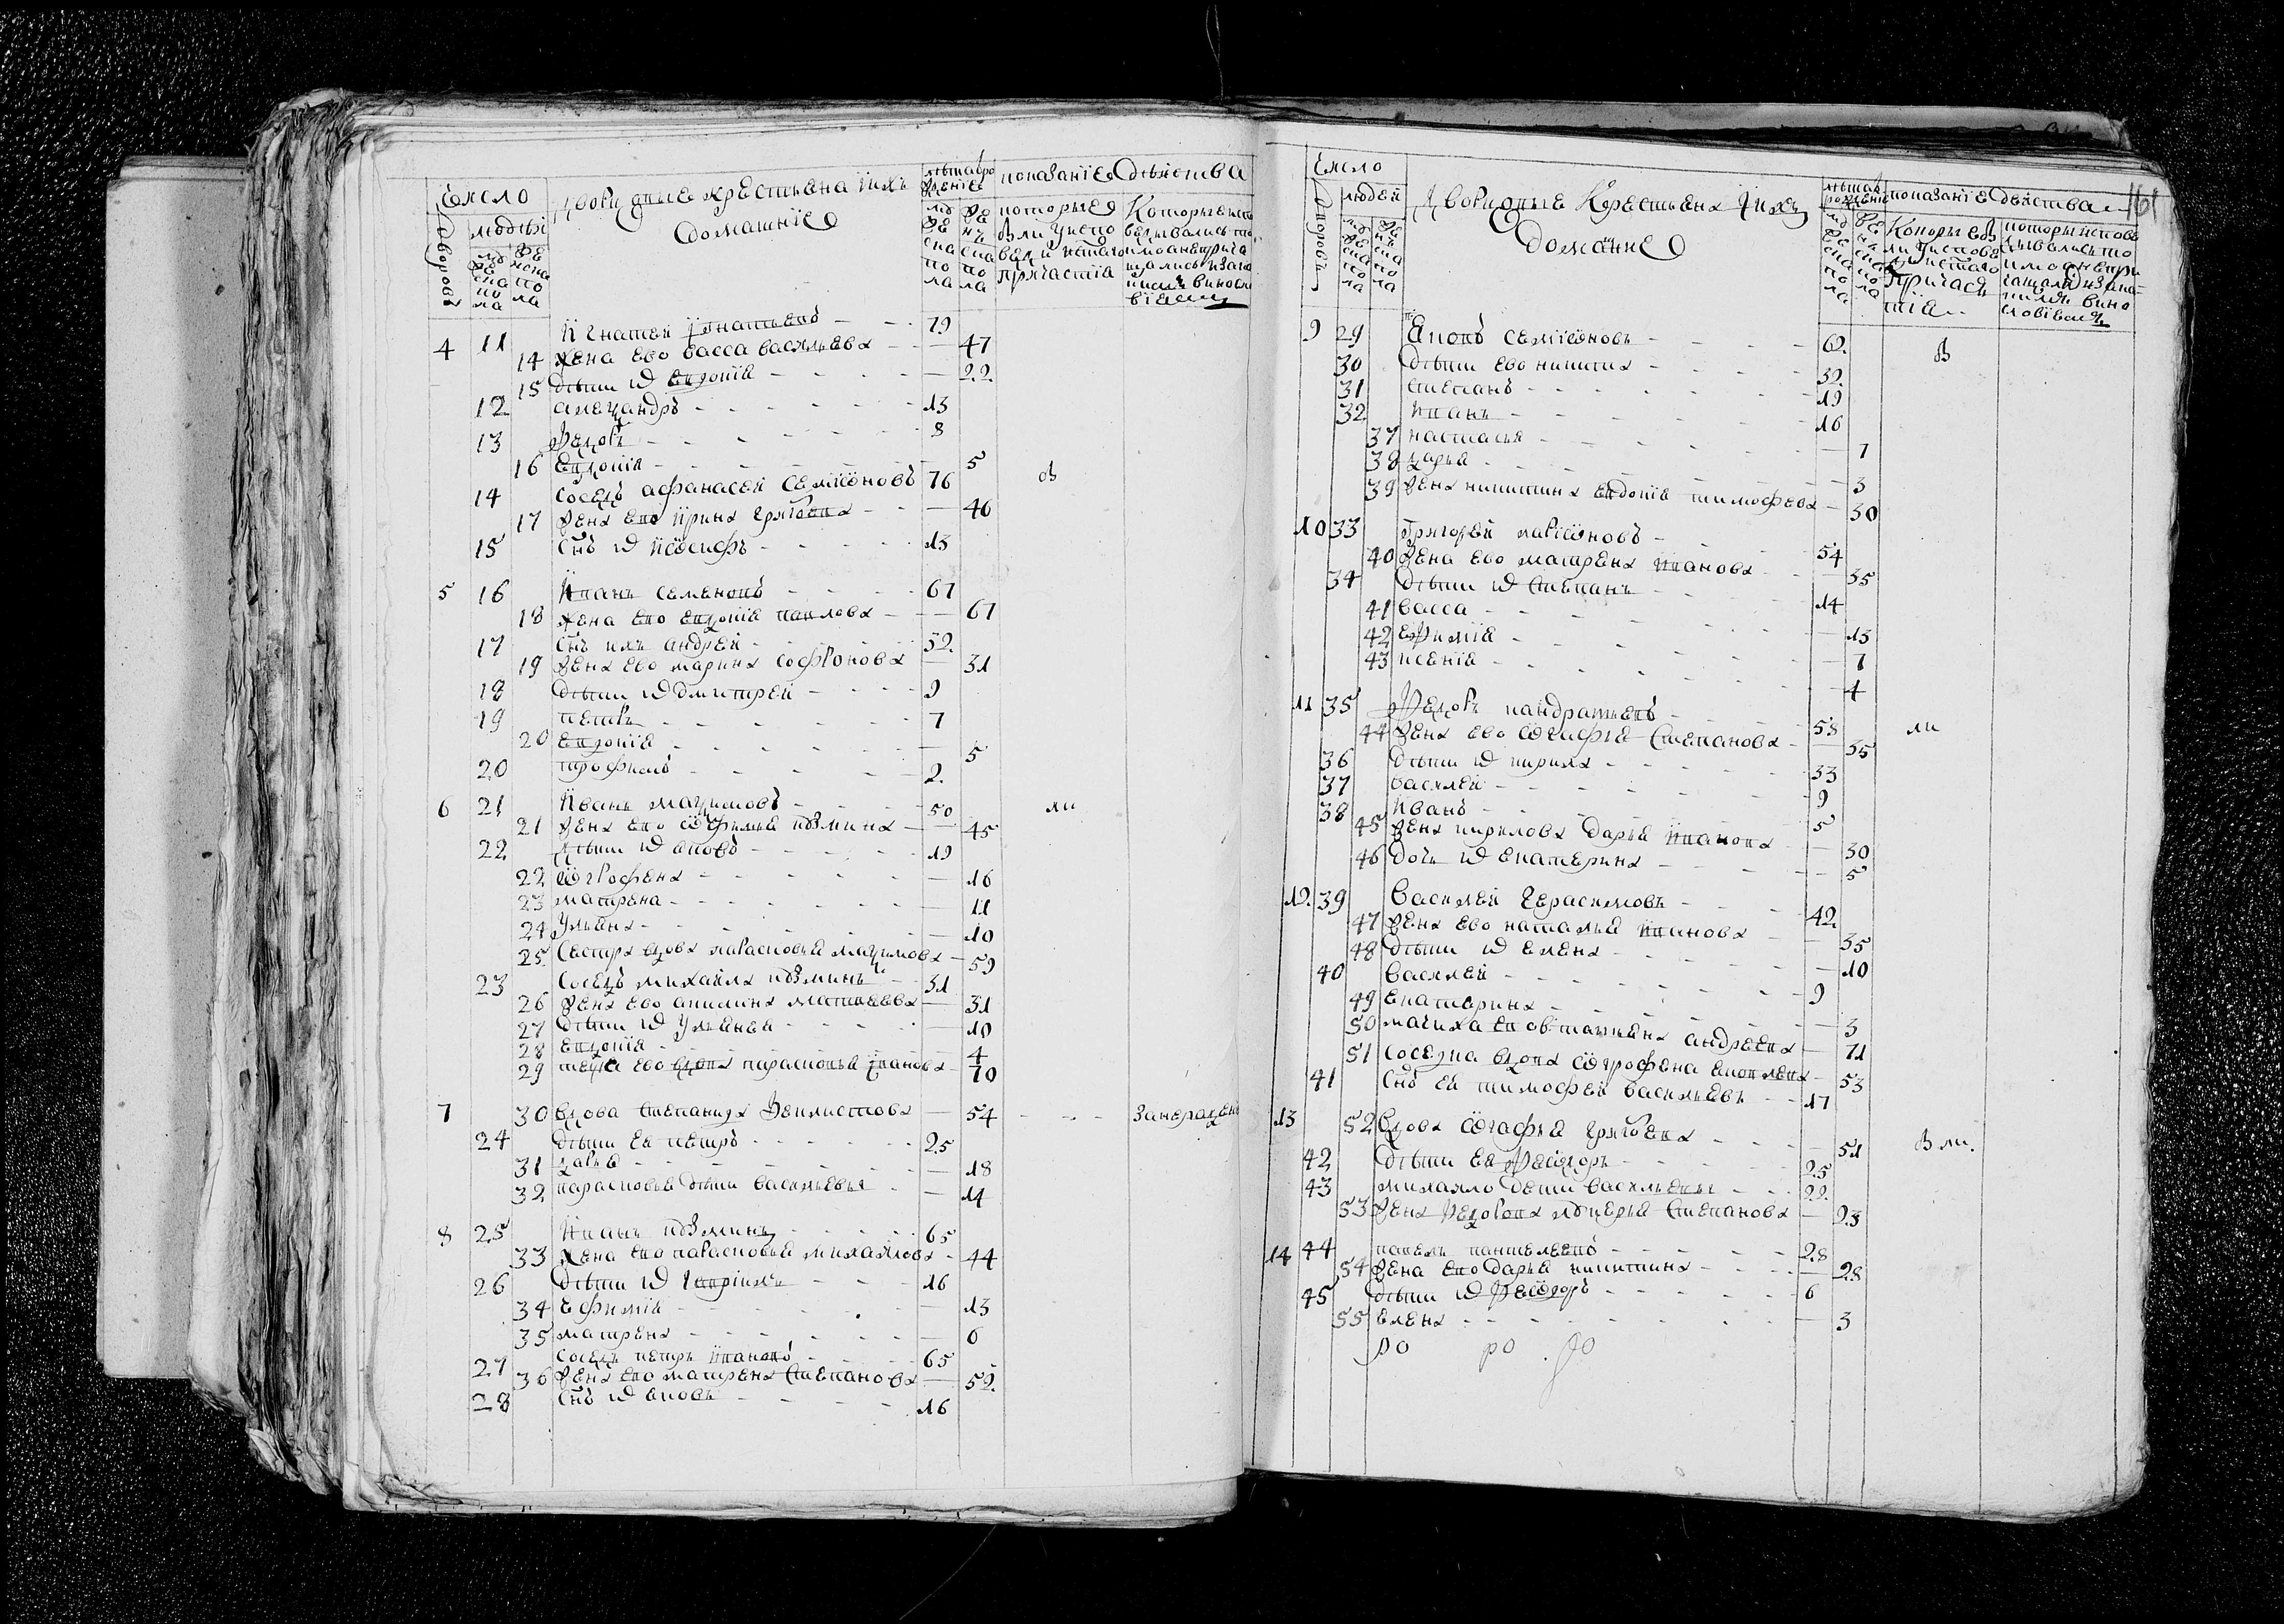 Число
Дворовъ
людей
муже ска по ла
жена ска по ла
Дворцовые крестьяня ихъ домашніе
лѣта рожденіе
муже ска по ла
женъ ска по ла
показаніе действа
которые были у исповеди и святаго причастія
Которые исповедывались токмо а не причащались и за
4 11 Игнатей Игнатьевъ 79
14 жена ево васса васильева 47
15 дѣти их Евдокія 22
12 алеѯандръ 13
13 Ѳедоръ 8
16 Евдокія 5
14 Соседъ афанасей Семионовъ 76 в
17 жена ево Ирина григоева 46
15 Снъ их Иосифъ 13
5 16 Иванъ Семеновъ 67
18 жена ево Евдокія павлова 67
17 Снъ ихъ андрей 32
19 жена ево марина софронова 31
18 дѣти их дмитрей 9
19 петръ 7
20 Евдокія 5
20 трофимъ 2
6 21 Иванъ маѯимовъ 50 ли
21 жена ево кузмина 45
22 дѣти их аковъ 19
22 16
23 матрена 11
24 Ульяна 10
25 Сестра вдова парасковья маѯимова 59
23 Соседъ михайла кузминъ 31
26 жена ево акилина матвеева 31
27 дѣти их Ульянея 10
28 Евдокія 4
29 теща ево вдова парасковья Иванова 70
7 30 Вдова Степанида Феклистова 54
24 дѣти Ея петръ 25
31 дарья 18
32 парасковья дѣти васильевы 14
8 25 Иванъ кузминъ 65
33 жена ево парасковья михайлова 44
26 дѣти их Гавріилъ 16
34 Ефимія 13
35 матрена 6
27 Соседъ петръ Ивановъ 65
36 жена ево матрена Степанова 52
28 Снъ их аковъ 16
161
Число
Дворовъ
людей
муже ска по ла
женъ ска по ла
Дворцовые Крестьяня ихъ домашніе
лѣта рожденіе
показаніе действа
Которые были у исповеди и святаго причастія
которы исповедывались токмо а не причащались и за
9 29 Аковъ Семионовъ 62 в
30 дѣти ево никита 32
31 степанъ 19
32 Иванъ 16
37 настасья 7
38 дарья 3
39 жена никитина евдокія тимофеева 30
10 33 Григорей ларионовъ 54
40 жена ево матрена Иванова 35
34 дѣти их Степанъ 14
41 васса 13
42 ефимія 7
43 ксенія 4
11 35 Ѳедоръ кандратьевъ 58 ли
44 жена ево огафья Степанова 35
36 дѣти их кирила 33
37 василей 9
38 Иванъ 5
45 жена кирилова дарья Иванова 30
46 дочь их Екатерина 5
12 39 Василей Герасимовъ 42
47 жена ево наталья Иванова 35
48 дѣти их елена 10
40 василей 9
49 екатерина 3
50 мачиха ево татьяна андреева 71
51 Соседка вдова огрофена аковлева 53
41 Снъ ея тимофей васильевъ 17
13 52 Вдова огафья григоева 51 в ли.
42 дѣти Ея Ѳеодоръ 25
43 михайло дети васильевы 22
53 жена Ѳедорова лукерья Степанова 23
14 44 павелъ пантелеевъ 28
54 жена ево дарья никитина 28
45 дѣти их Ѳеодоръ 6
55 елена 3